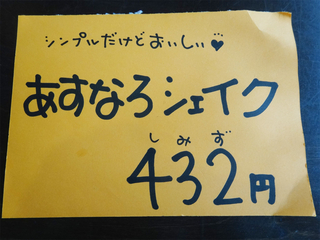 シンプルだけどおいしい♥
あすなろシェイク
しみず
432円